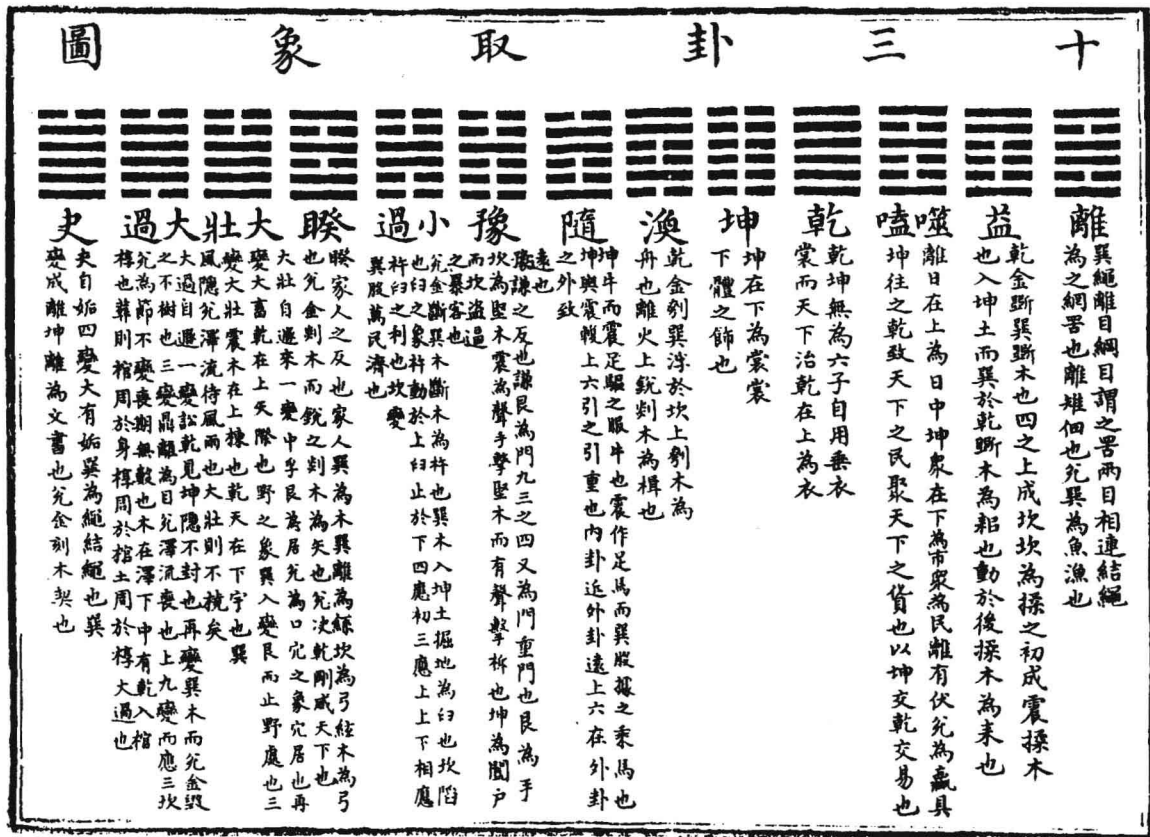 十三卦取象圖
離
巽繩離目綱目謂之罟兩目相連結繩
為之網罟也離雉佃也兊巽為魚漁也
益
乾金斵巽斵木也四之上成坎坎為揉之初成震揉木
也入坤土而巽於乾斵木為耜也動於後揉木為耒也
噬嗑
離日在上為日中坤衆在下為市衆為民離有伏兊為蠃貝
坤往之乾致天下之民聚天下之貨也以坤交乾交易也
乾
乾坤無為六子自用垂衣
裳而天下治乾在上為衣
坤
坤在下為裳裳
下體之飾也
渙
乾金刳巽浮於坎上刳木為
舟也離火上銳剡木為楫也
隨
坤牛而震足驅之服牛也震作足馬而巽股據之乘馬也
坤輿震輹上六引之引重也內卦近外卦遠上六在外卦
之外致
遠也
豫
豫謙之反也謙艮為門九三之四又為門重門也艮為手
坎為堅木震為聲手擊堅木而有聲擊柝也坤為闔戶
而坎盜逼
之暴客也
小過
兊金斷巽木斷木為杵也巽木入坤土掘地為臼也坎陷
也臼之象杵動於上臼止於下四應初三應上上下相應
杵臼之利也坎變
巽股萬民濟也
睽
睽家人之反也家人巽為木巽離為絲坎為弓絃木為弓
也兊金剡木而銳之剡木為矢也兊決乾剛威天下也
大壯
大壯自遯來一變中孚艮為居兊為口穴之象穴居也再
變大畜乾在上天際也野之象巽入變艮而止野處也三
變大壯震木在上棟也乾天在下宇也巽
風隱兊澤流待風雨也大壯則不撓矣
大過
大過自遯一變訟乾見坤隱不封也再變巽木而兊金毀
之不樹也三變鼎離為目兊澤流喪也上九變而應三坎
兊為節不變喪期無數也木在澤下中有乾人棺
椁也葬則棺周於身椁周於棺土周於椁大過也
夬
夬自姤四變大有姤巽為繩結繩也巽
變成離坤離為文書也兊金刻木契也